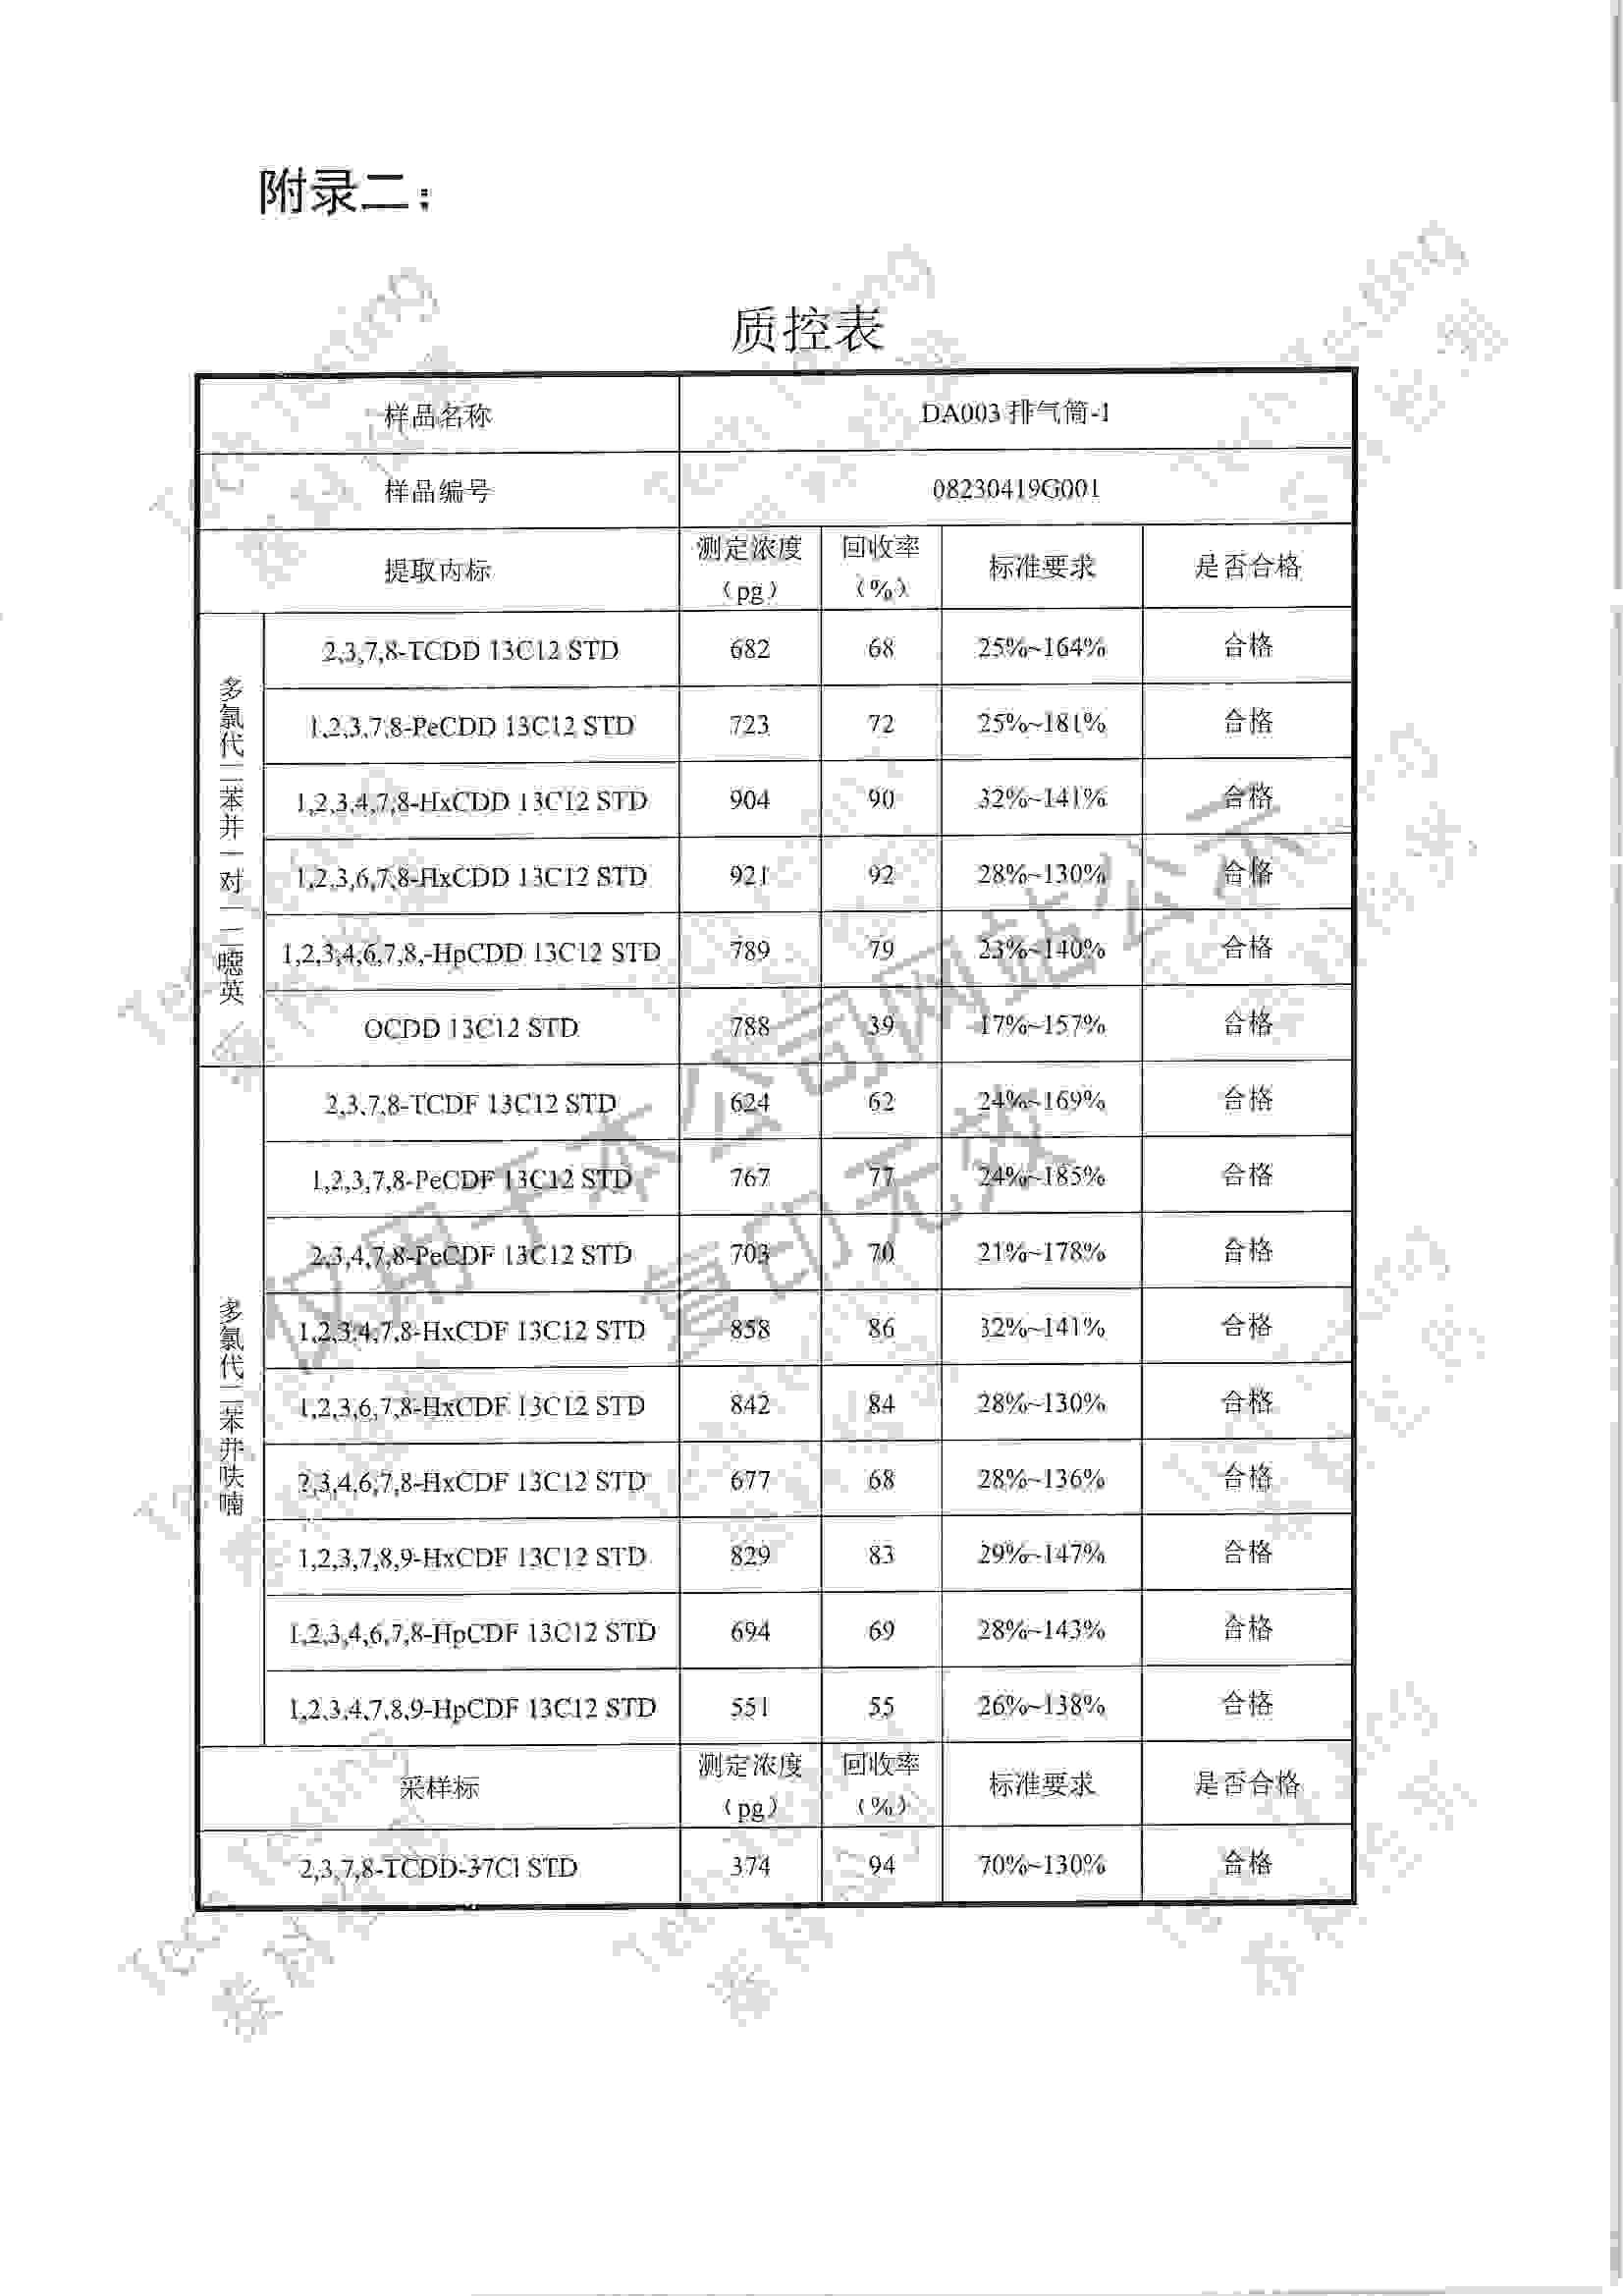 附录二：
质控表
样品名称 DA003排气筒-1
样品编号 08230419G001
提取内标 测定浓度（pg） 回收率（%） 标准要求 是否合格
多氯代二苯并-对-二噁英
2,3,7,8-TCDD 13C12 STD 682 68 25%~164% 合格
1,2,3,7,8-PeCDD 13C12 STD 723 72 25%~181% 合格
1,2,3,4,7,8-HxCDD 13C12 STD 904 90 32%~141% 合格
1,2,3,6,7,8-HxCDD 13C12 STD 921 92 28%~130% 合格
1,2,3,4,6,7,8,-HpCDD 13C12 STD 789 79 23%~140% 合格
OCDD 13C12 STD 788 39 17%~157% 合格
多氯代二苯并呋喃
2,3,7,8-TCDF 13C12 STD 624 62 24%~169% 合格
1,2,3,7,8-PeCDF 13C12 STD 767 77 24%~185% 合格
2,3,4,7,8-PeCDF 13C12 STD 703 70 21%~178% 合格
1,2,3,4,7,8-HxCDF 13C12 STD 858 86 32%~141% 合格
1,2,3,6,7,8-HxCDF 13C12 STD 842 84 28%~130% 合格
2,3,4,6,7,8-HxCDF 13C12 STD 677 68 28%~136% 合格
1,2,3,7,8,9-HxCDF 13C12 STD 829 83 29%~147% 合格
1,2,3,4,6,7,8-HpCDF 13C12 STD 694 69 28%~143% 合格
1,2,3,4,7,8,9-HpCDF 13C12 STD 551 55 26%~138% 合格
采样标 测定浓度（pg） 回收率（%） 标准要求 是否合格
2,3,7,8-TCDD-37Cl STD 374 94 70%~130% 合格
仅用于本公司网站公示
复印无效